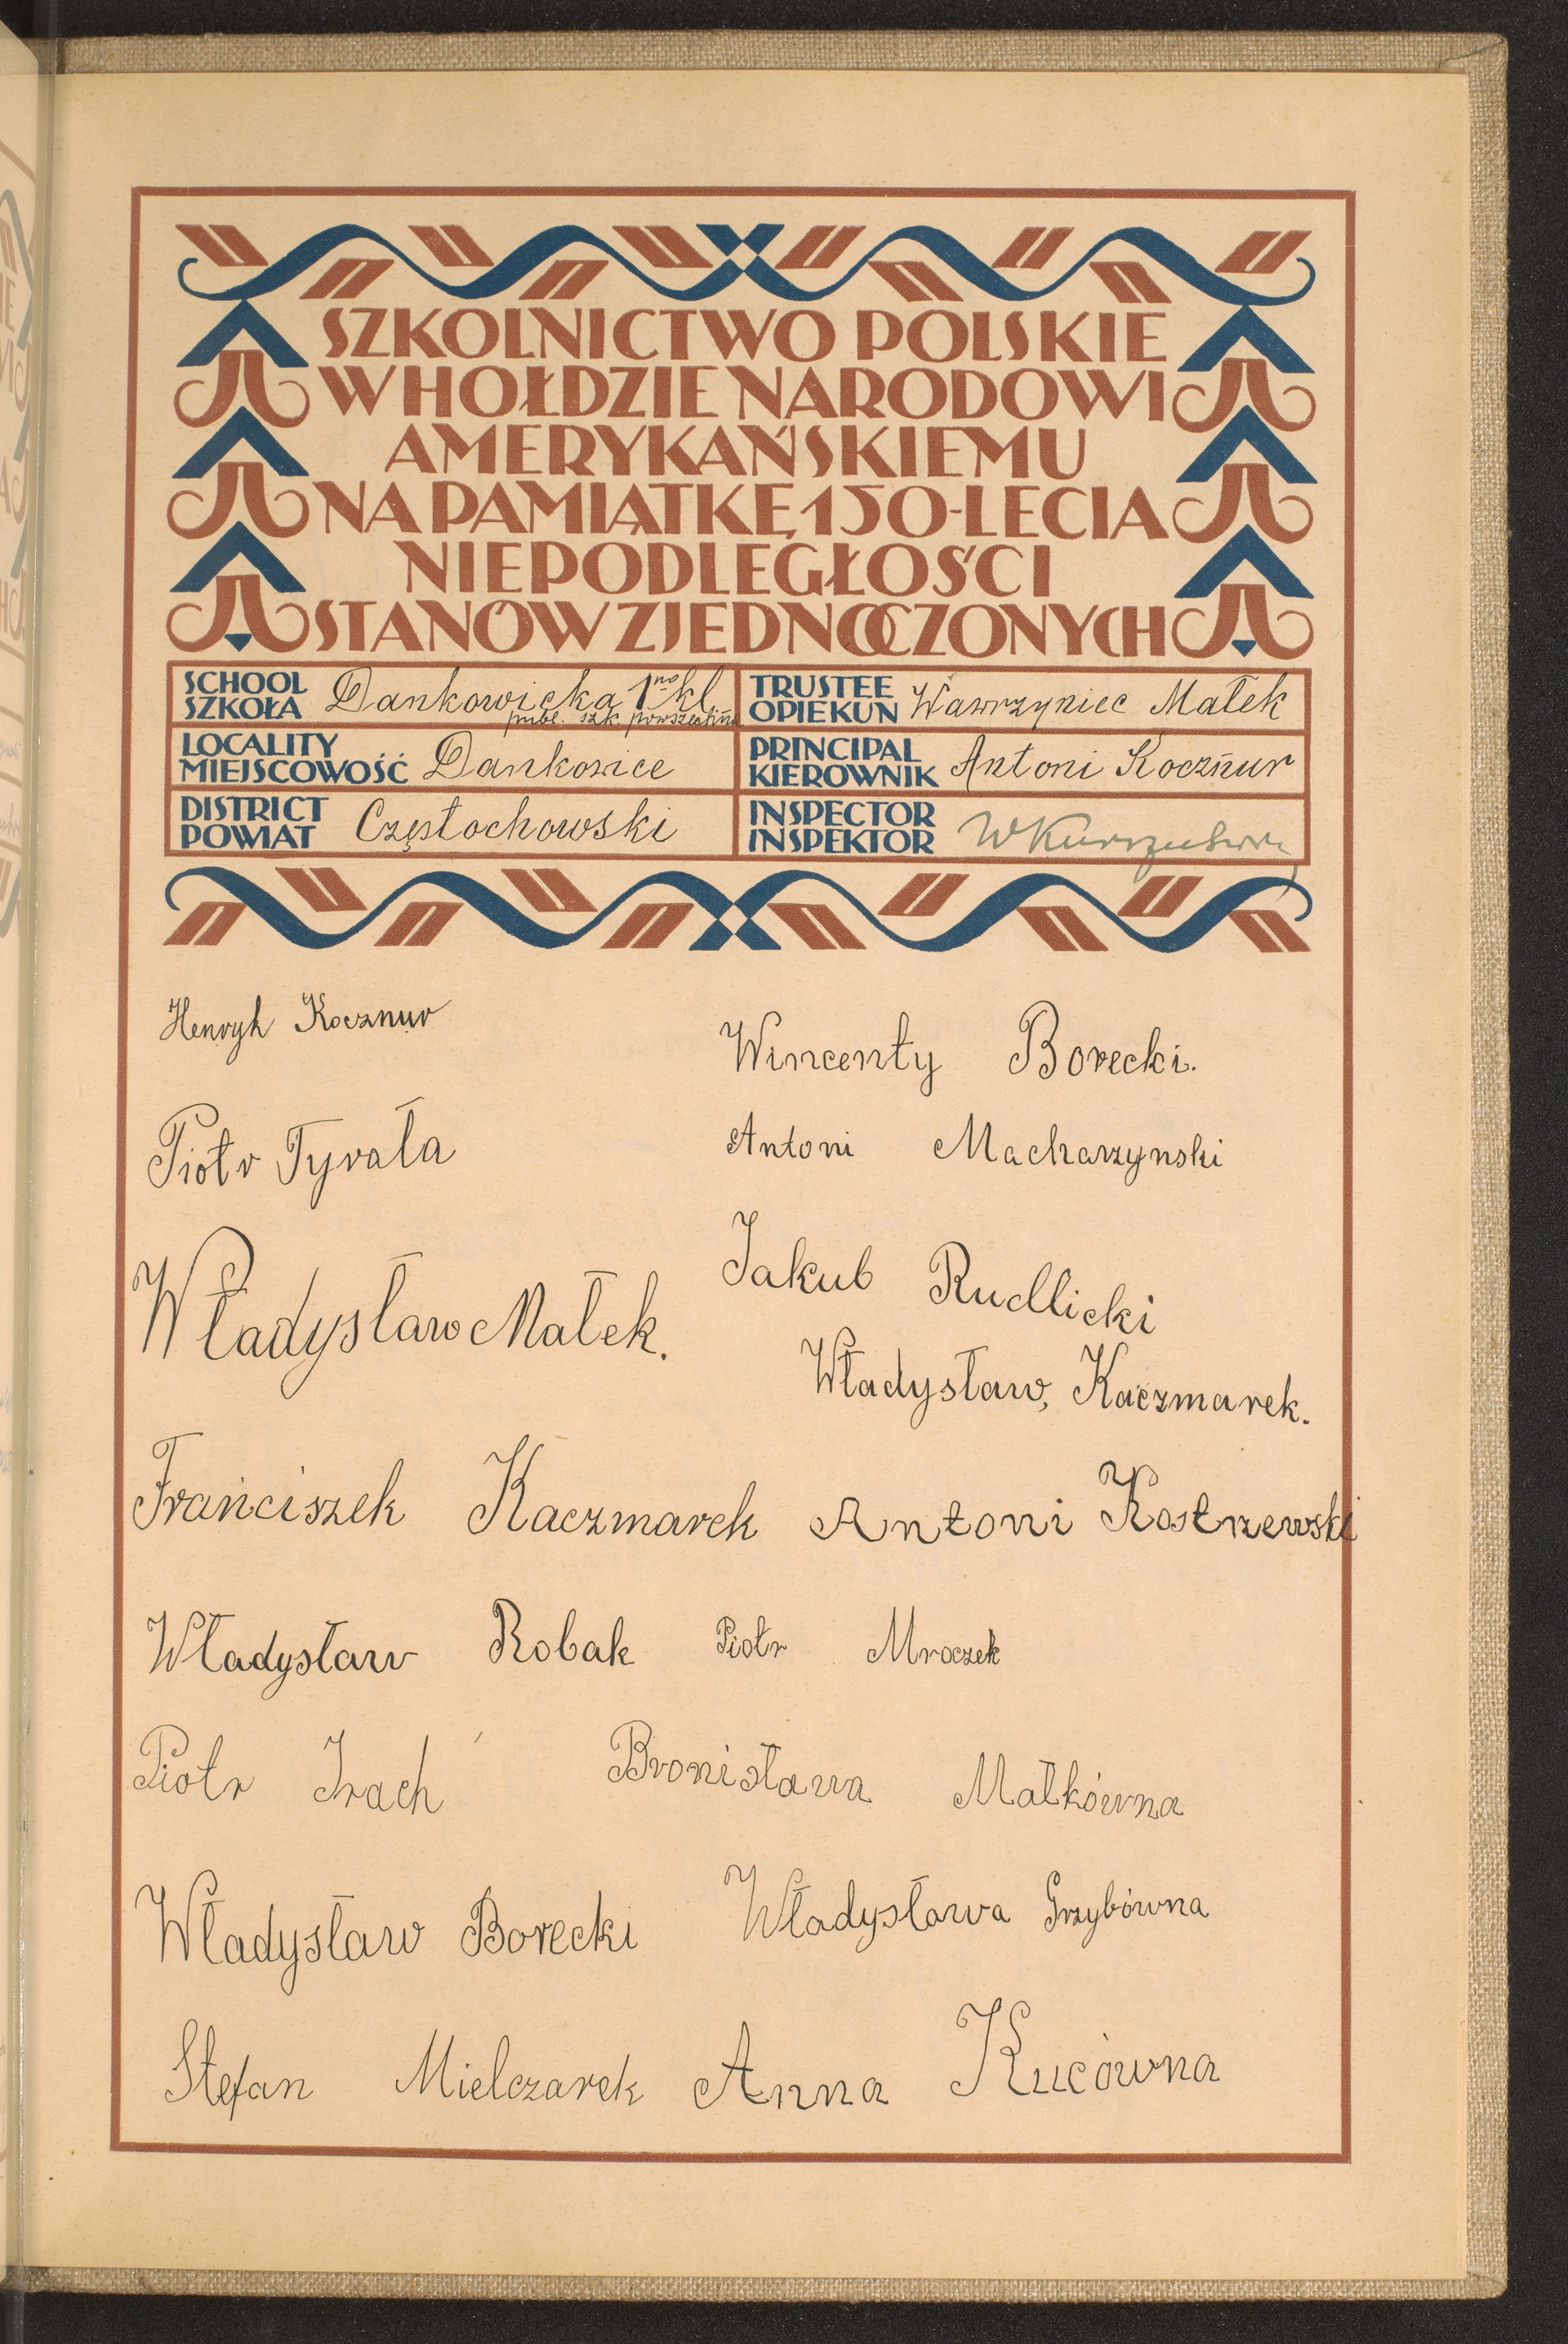 SZKOLNICTWO POLSKIE
W HOŁDZIE NARODOWI
AMERYKAŃSKIEMU
NA PAMIĄTKĘ 150-LECIA
NIEPODLEGŁOŚCI
STANÓW ZJEDNOCZONYCH
SCHOOL
SZKOŁA Dankowicka 1no kl.
publ. szk. powszechna
TRUSTEE
OPIEKUN Wawrzyniec Małek
LOCALITY
MIEJSCOWOŚĆ Dankowice
PRINCIPAL
KIEROWNIK Antoni Kocznur
DISTRICT
POWIAT Częstochowski
INSPECTOR
INSPEKTOR
Henryk Kocznur
Wincenty Borecki.
Piotr Tyrała
Antoni Macharzynski
Władysław Małek.
Jakub Rudlicki
Władysław, Kaczmarek.
Franciszek Kaczmarek
Antoni Kostrzewski
Władysław Robak
Piotr Mroczek
Piotr
Bronisława Małkówna
Władysław Borecki
Władysława Grzybówna
Stefan Mielczarek
Anna Kucówna